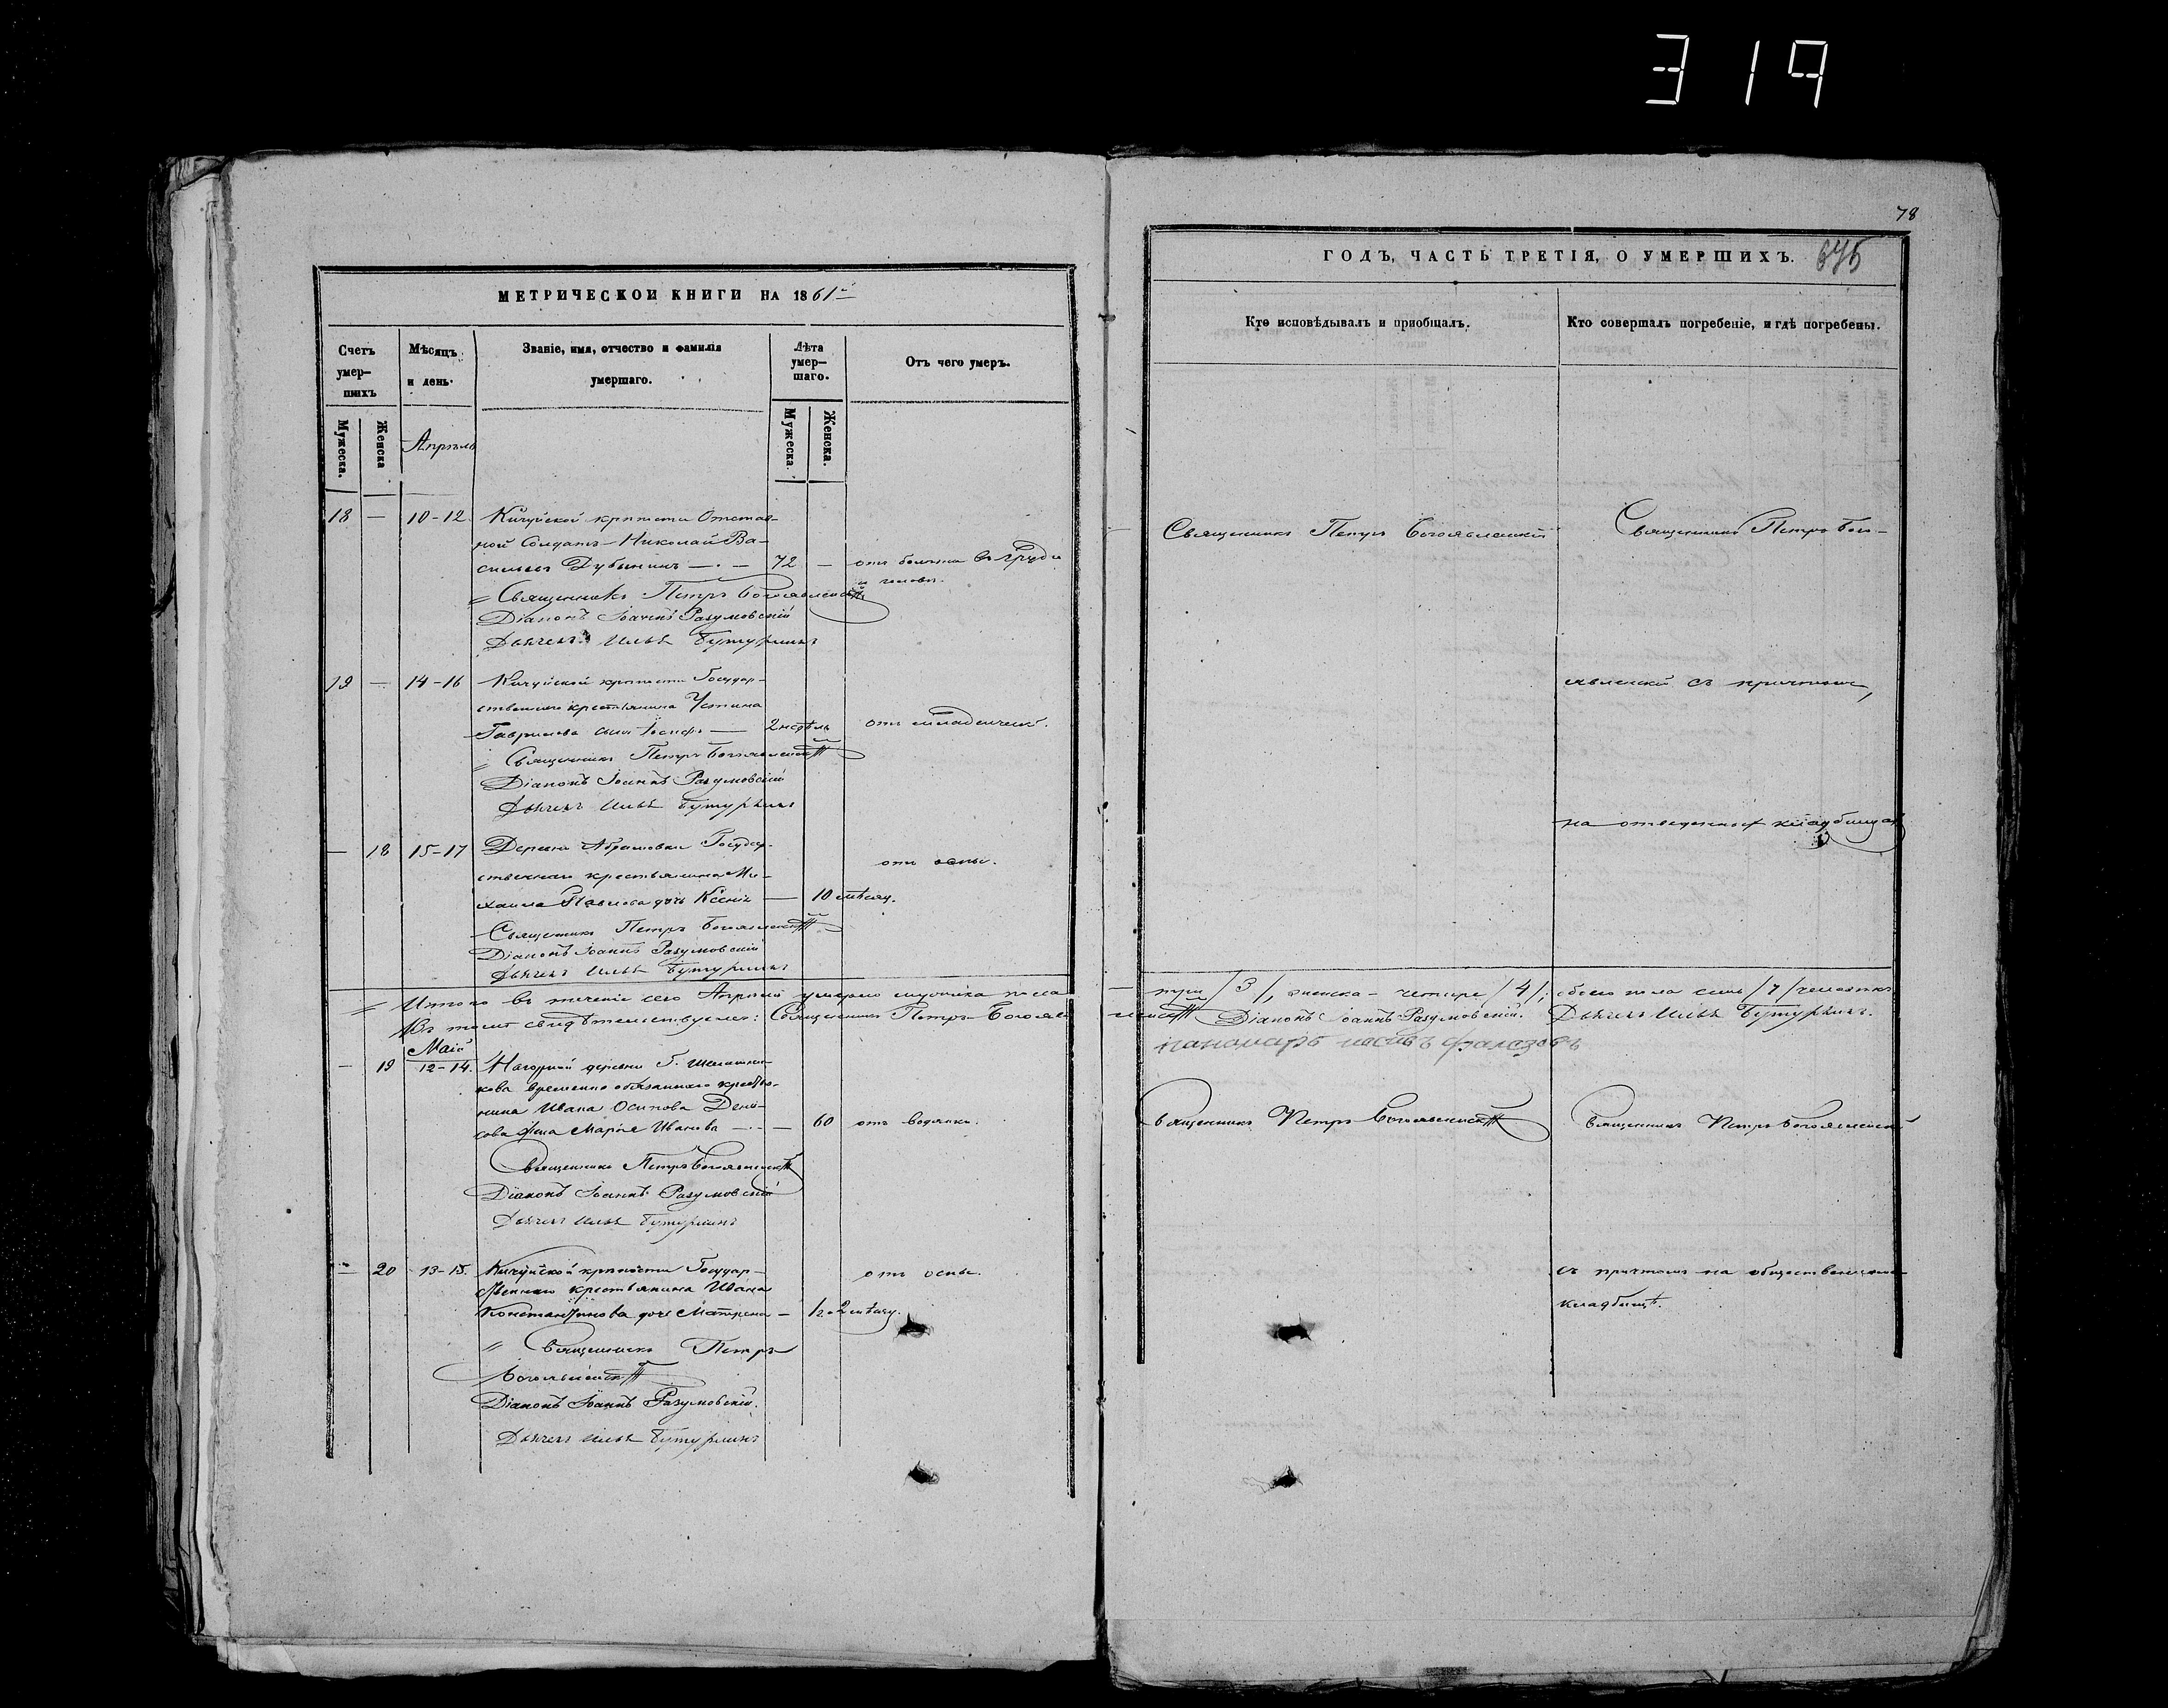 319
МЕТРИЧЕСКОИ КНИГИ НА 1861й
Счетъ умер-шихъ
Мѣсяцъ и день.
Званіе, имя, отчество и фамилія умершаго.
Лѣта умер-шаго.
Отъ чего умеръ.
Мужеска.
Женска
Мужеска.
Женска.
Апрѣль
18 — 10-12. Кичуйской крѣпости Отстав-
ной Солдатъ Николай Ва-
сильевъ Дубынинъ — 72 — отъ болѣзни въ груди
Священникъ Петръ Богоявленскій
Діаконъ Іоаннъ Разумовскій
Дьячекъ Илья Бутурлинъ
19 — 14-16 Кичуйской крѣпости Государ-
ственнаго крестьянина Устина
Гаврилова сынъ Іосифъ — 2 недѣль отъ младенческ.
Священникъ Петръ Богоявленскій
Діаконъ Іоаннъ Разумовскій
Дьячекъ Илья Бутурлинъ
— 18 15-17 Деревни Абрамовки Государ-
отъ оспы.
ственнаго крестьянина Ми-
хаила Павлова дочь Ксенія — 10 мѣсяц.
Священникъ Петръ Богоявленскій
Діаконъ Іоаннъ Разумовскій
Дьячекъ Илья Бутурлинъ
Итого въ теченіе сего Апрѣля умерло мужеска пола
Въ томъ свидѣтельствуемъ: Священникъ Петръ Богояв
Маій
— 19 12-14. Нагорной деревни Г.
кова временно обязаннаго крестья-
нина Ивана Осипова
жена Марѳа Иванова — 60 отъ водянки.
Священникъ Петръ Богоявленскій
Діаконъ Іоаннъ Разумовскій
Дьячекъ Илья Бутурлинъ
— 20 13-15. Кичуйской крѣпости Государ-
отъ оспы.
ственнаго крестьянина Ивана
Константинова дочь Матрена — 1 г. 2 мѣсяц.
Священникъ Петръ
Богоявленскій
Діаконъ Іоаннъ Разумовскій.
Дьячекъ Илья Бутурлинъ
78
ГОДЪ, ЧАСТЬ ТРЕТІЯ, О УМЕРШИХЪ.
Кто исповѣдывалъ и пріобщалъ.
Кто совершалъ погребеніе, и гдѣ погребены.
Священникъ Петръ Богоявленскій
Священникъ Петръ Бого-
явленскій съ причтомъ,
на отведенных кладбищах
три /3/, женска – четыре /4/, обоего пола семь /7/ человѣкъ
ленскій Діаконъ Іоаннъ Разумовскій. Дьячекъ Илья Бутурлинъ.
пономарь
Священникъ Петръ Богоявленскій
Священникъ Петръ Богоявленскій
съ причтомъ на общественномъ
кладбищѣ.